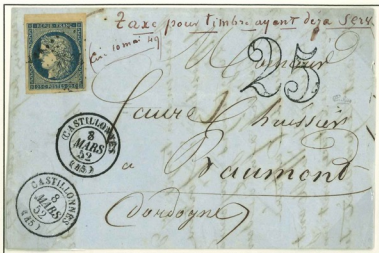 Taxe pour timbre ayant déja servi
25
Monsieur
Faure
a Beaumont
Dordogne
CASTILLONNÈS
8
MARS
52
(45)
CASTILLONNÈS
8
MARS
52
(45)